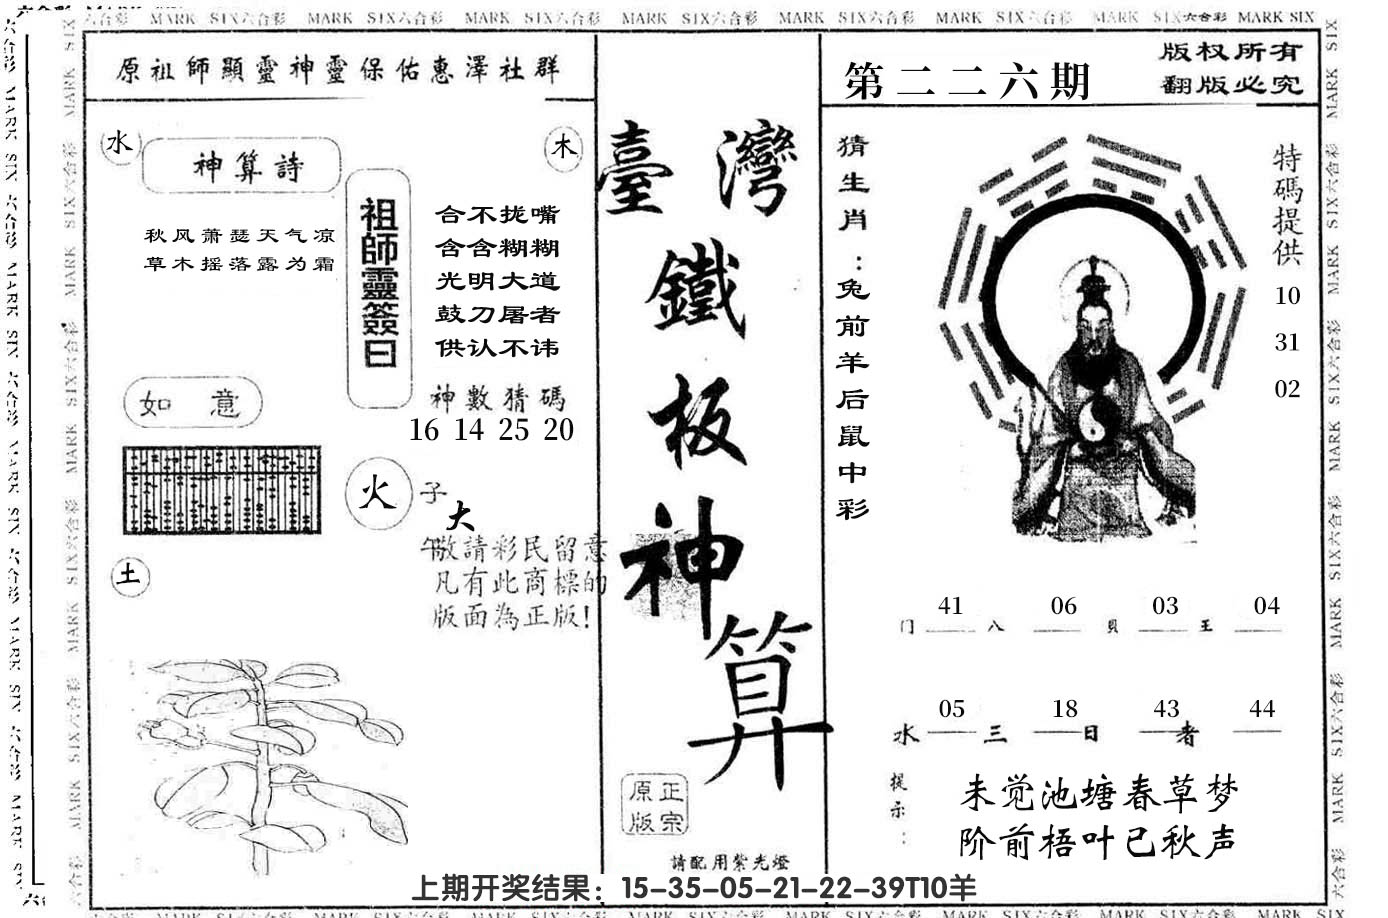 MARK SIX六合彩 MARK SIX六合彩 MARK SIX六合彩 MARK SIX六合彩 MARK SIX六合彩 MARK SIX六合彩 MARK SIX六合彩 MARK SIX
原祖師顯靈神靈保佑惠澤社群
水
神算詩
木
秋风萧瑟天气凉
草木摇落露为霜
祖師靈簽曰
合不拢嘴
含含糊糊
光明大道
鼓刀屠者
供认不讳
神數猜碼
16 14 25 20
如 意
火
子
大
午
敬請彩民留意
凡有此商標的
版面為正版!
土
臺灣
鐵
板
神
算
正宗
原版
請配用紫光燈
第二二六期
版权所有
翻版必究
猜生肖:兔前羊后鼠中彩
特碼提供
10
31
02
41 06 03 04
门 八 貝 王
05 18 43 44
水 三 日 者
提示:
未觉池塘春草梦
阶前梧叶已秋声
上期开奖结果：15-35-05-21-22-39T10羊